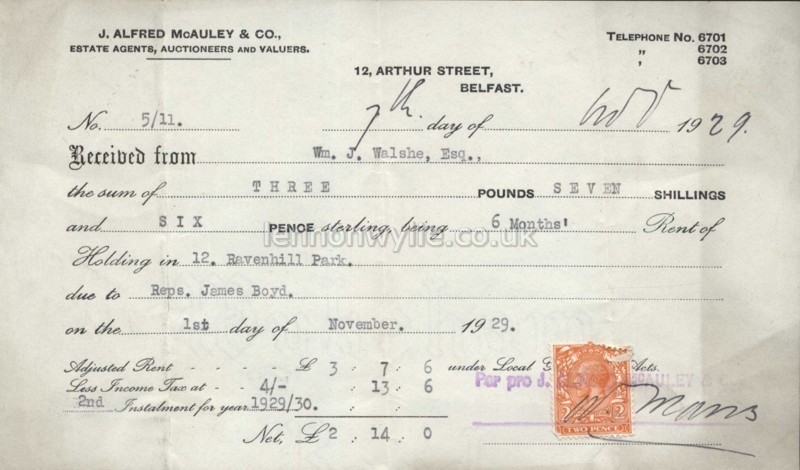 J. ALFRED McAULEY & CO.,
ESTATE AGENTS, AUCTIONEERS AND VALUERS.
TELEPHONE No. 6701
" 6702
' 6703
12, ARTHUR STREET,
BELFAST.
No. 5/11. 7th day of Nov 1929.
Received from Wm. J. Walshe, Esq.,
the sum of THREE POUNDS SEVEN SHILLINGS
and SIX PENCE sterling, being 6 Months' Rent of
lennonwylie.co.uk
Holding in 12. Ravenhill Park.
due to Reps. James Boyd.
on the 1st day of November. 1929.
Adjusted Rent - - - - £ 3 : 7 : 6 under Local Acts.
Less Income Tax at - - 4/- : 13 : 6
Per pro J. McAULEY &
2nd Instalment for year 1929/30. : :
2 2
TWO PENCE
Net, £ 2 : 14 : 0